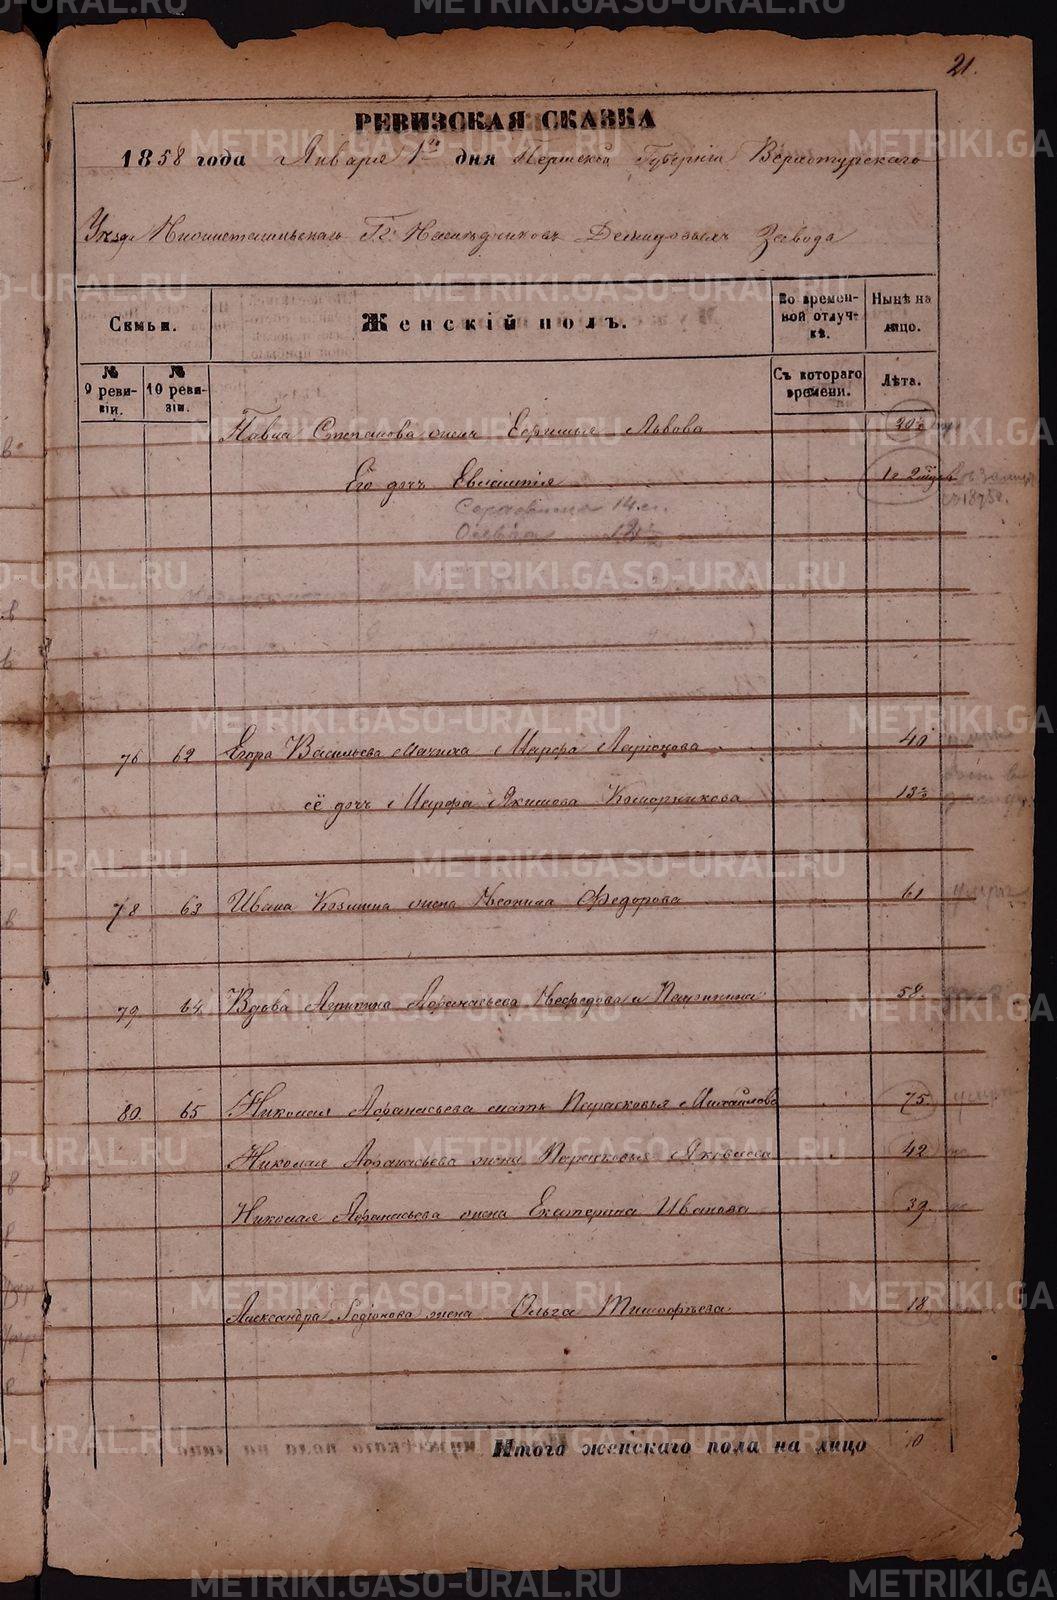 21.
РЕВИЗСКАЯ СКАЗКА
1858 года Января 1го дня Пермской Губерніи Верхотурскаго
Уезда Нижнетагильскаго Гг. Наследниковъ Демидовыхъ Завода
Семьи.
Женскій полъ.
Во времен-
ной отлуч-
кѣ.
Нынѣ на
лицо.
№
9 реви-
зіи.
№
10 реви-
зіи.
Съ котораго
времени.
Лѣта.
Павла Степанова жена Львова 30½
Его дочь 1 2
14
Ольга
76 62 Егора Васильева мачиха Марфа Ларіонова 40
её дочь Марфа Якимова 13½
78 63 Ивана Козмина жена Неонила Федорова 61 умерла
79 64 Вдова Афанасьева 58.
80 65 Николая Афанасьева мать Парасковья Михайлова 75.
Николая Афанасьева жена Парасковья Яковлева 42
Николая Афанасьева жена Екатерина Иванова 39
Александра Родіонова жена Ольга Тимофѣева 18
Итого женскаго пола на лицо 10
METRIKI.GASO-URAL.RU